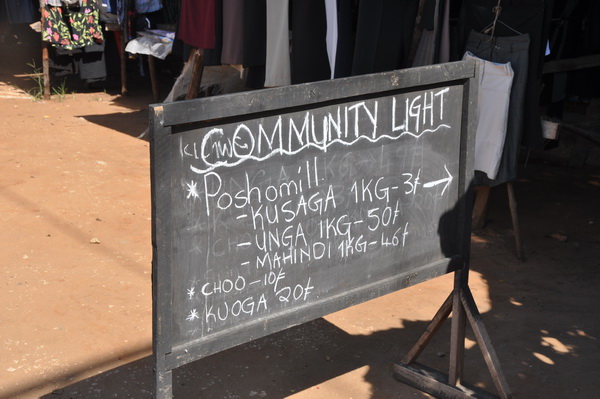 COMMUNITY LIGHT
* Poshomill
- KUSAGA 1KG - 3/=
- UNGA 1KG - 50/=
- MAHINDI 1KG - 46/=
* CHOO - 10/=
* KUOGA 20/=